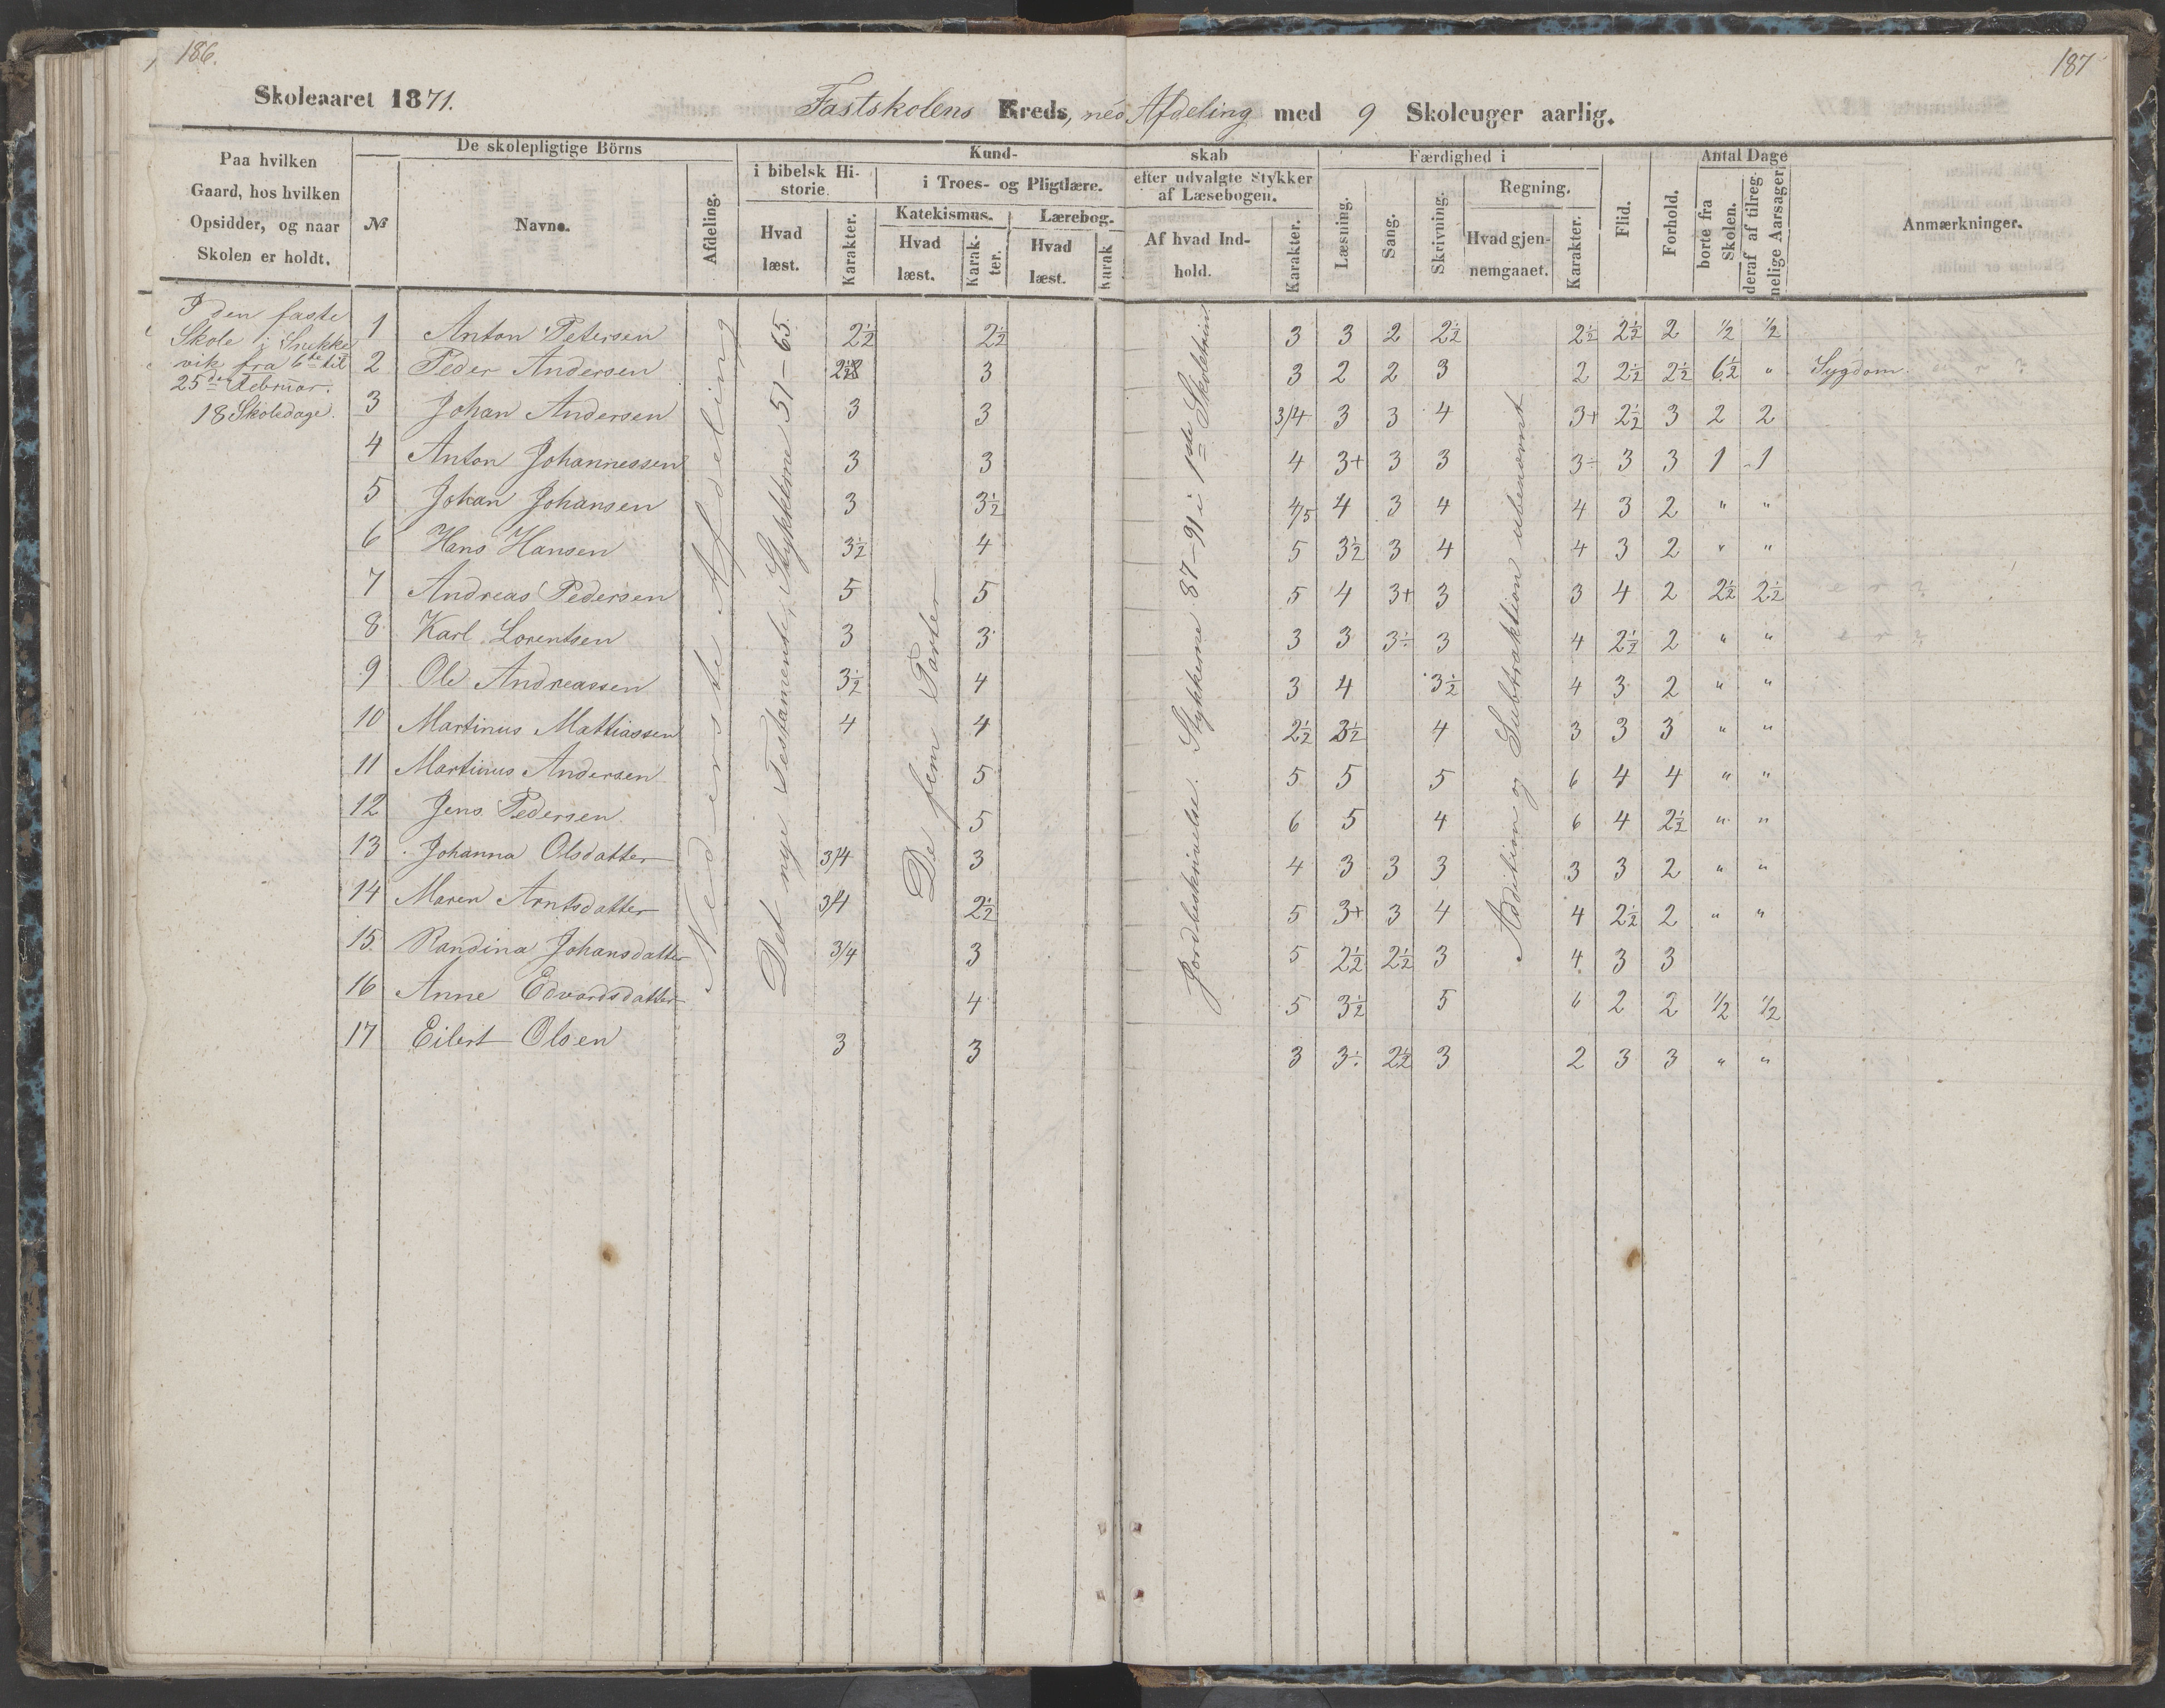 186.
187
Skoleaaret 1871.
Fastskolens Kreds, ned Afdeling med 9 Skoleuger aarlig.
Paa hvilken Gaard, hos hvilken Opsidder, og naar Skolen er holdt.
De skolepligtige Börns
№
Navne.
Afdeling.
Kundskab
i bibelsk Historie.
Hvad læst.
Karakter.
i Troes- og Pligtlære.
Katekismus.
Hvad læst.
Karakter.
Lærebog.
Hvad læst.
Karak
efter udvalgte Stykker af Læsebogen.
Af hvad Indhold.
Karakter.
Færdighed i
Læsning.
Sang.
Skrivning.
Regning.
Hvad gjennemgaaet.
Karakter.
Flid.
Forhold.
Antal Dage
borte fra Skolen.
deraf af tilregnelige Aarsager.
Anmærkninger.
I den faste
Skole i Snekke
vik fra 6te til
25de Februar.
18 Skoledage.
Nederste Afdeling
Det nye Testamente, Stykkerne 51-65.
De fem Parter
Jordbeskrivelse. Stykkerne 87-91 i 1ste Skoletrin
Addition og Subtraktion ubenævnt
1 Anton Petersen 2½ 2½ 3 3 2 2½ 2½ 2½ 2 ½ ½
2 Peder Andersen 2½ 3 3 2 2 3 2 2½ 2½ 6½ " Sygdom.
3 Johan Andersen 3 3 3/4 3 3 4 3+ 2½ 3 2 2
4 Anton Johannessen 3 3 4 3+ 3 3 3÷ 3 3 1 1
5 Johan Johansen 3 3½ 4/5 4 3 4 4 3 2 " "
6 Hans Hansen 3½ 4 5 3½ 3 4 4 3 2 " "
7 Andreas Pedersen 5 5 5 4 3+ 3 3 4 2 2½ 2½
8 Karl Lorentsen 3 3 3 3 3÷ 3 4 2½ 2 " "
9 Ole Andreassen 3½ 4 3 4 3½ 4 3 2 " "
10 Martinus Mattiassen 4 4 2½ 3½ 4 3 3 3 " "
11 Martinus Andersen 5 5 5 5 6 4 4 " "
12 Jens Pedersen 5 6 5 4 6 4 2½ " "
13 Johanna Olsdatter 3/4 3 4 3 3 3 3 3 2 " "
14 Maren Arntsdatter 3/4 2½ 5 3+ 3 4 4 2½ 2 " "
15. Randina Johansdatter 3/4 3 5 2½ 2½ 3 4 3 3
16 Anne Edvardsdatter 4 5 3½ 5 6 2 2 ½ ½
17 Eilert Olsen 3 3 3 3÷ 2½ 3 2 3 3 " "